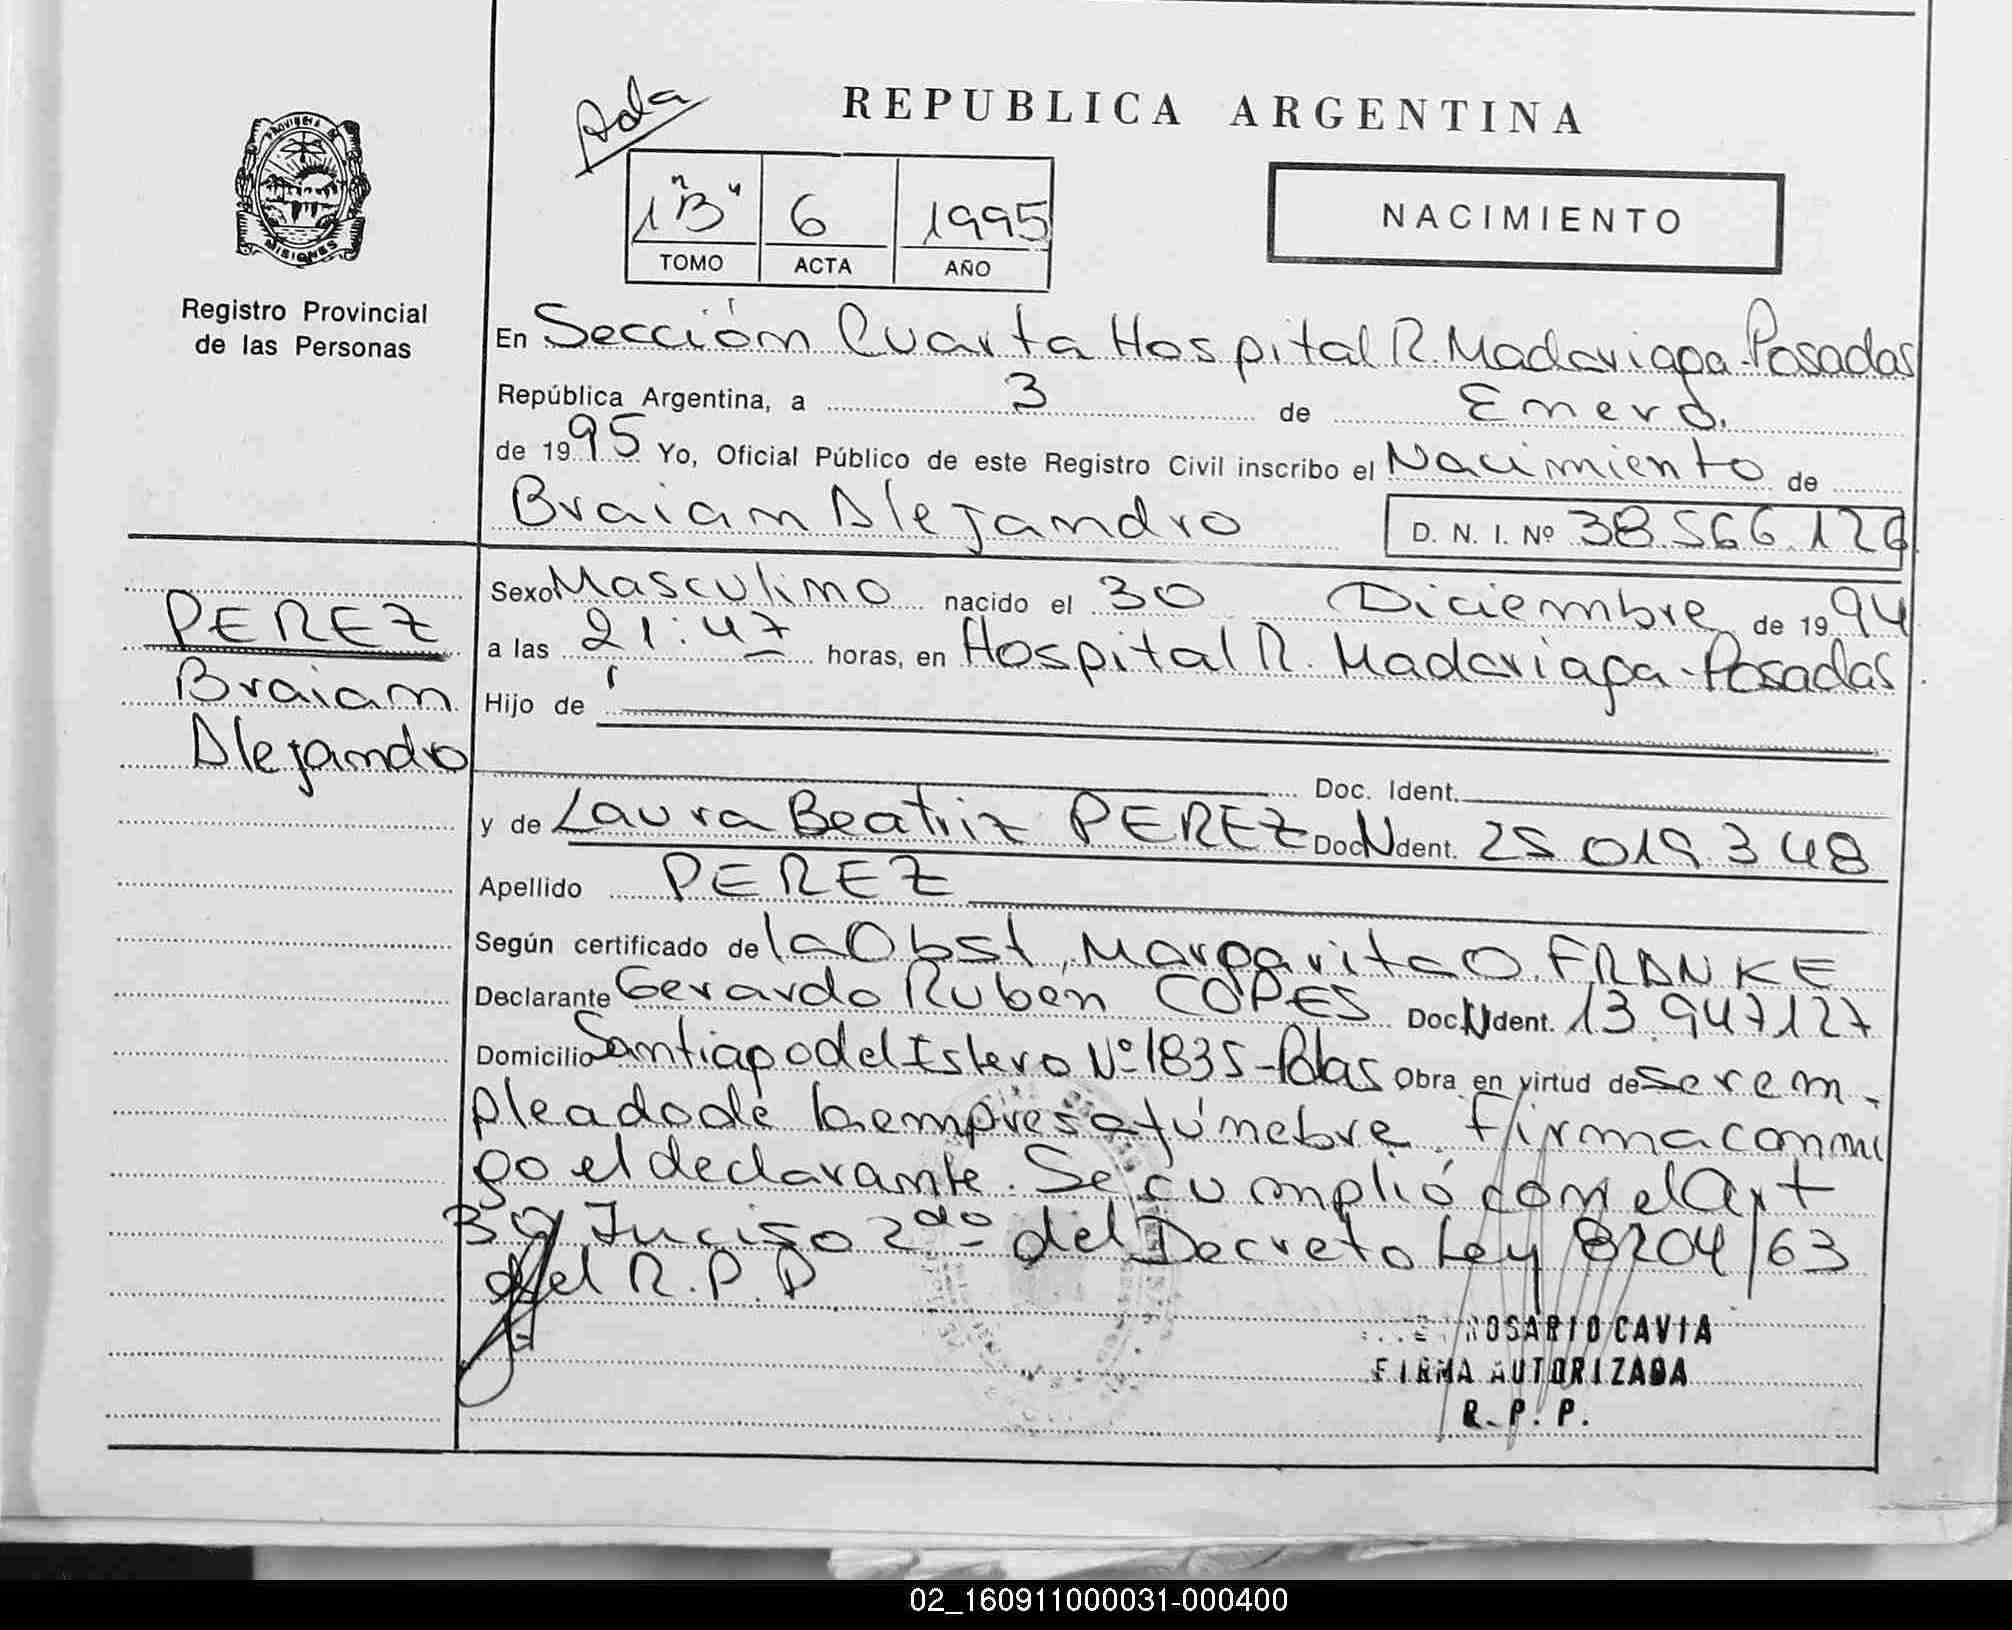 REPUBLICA ARGENTINA
Ada
1 "B" 6 1995
TOMO ACTA AÑO
NACIMIENTO
PROVINCIA DE MISIONES
Registro Provincial
de las Personas
En Sección Cuarta Hospital R. Madariaga-Posadas
República Argentina, a 3 de Enero.
de 1995 Yo, Oficial Público de este Registro Civil inscribo el Nacimiento de
Braian Alejandro D. N. I. Nº 38.566.126
PEREZ
Braian
Alejandro
Sexo Masculino nacido el 30 Diciembre de 1994
a las 21:47 horas, en Hospital R. Madariaga-Posadas
Hijo de
Doc. Ident.
y de Laura Beatriz PEREZ Doc. Ident. N 25 019 348
Apellido PEREZ
Según certificado de la Obst, Margarita O. FRANKE
Declarante Gerardo Ruben COPES Doc. Ident. N 13.947127
Domicilio Santiago del Estero Nº 1835-Pdas Obra en virtud de ser em-
pleado de la empresa fúnebre. firma conmi
go el declarante. Se cumplió con el Art
39 Inciso 2do del Decreto Ley 8204/63
del R.P.P
ROSARIO CAVIA
FIRMA AUTORIZADA
R. P. P.
02_160911000031-000400